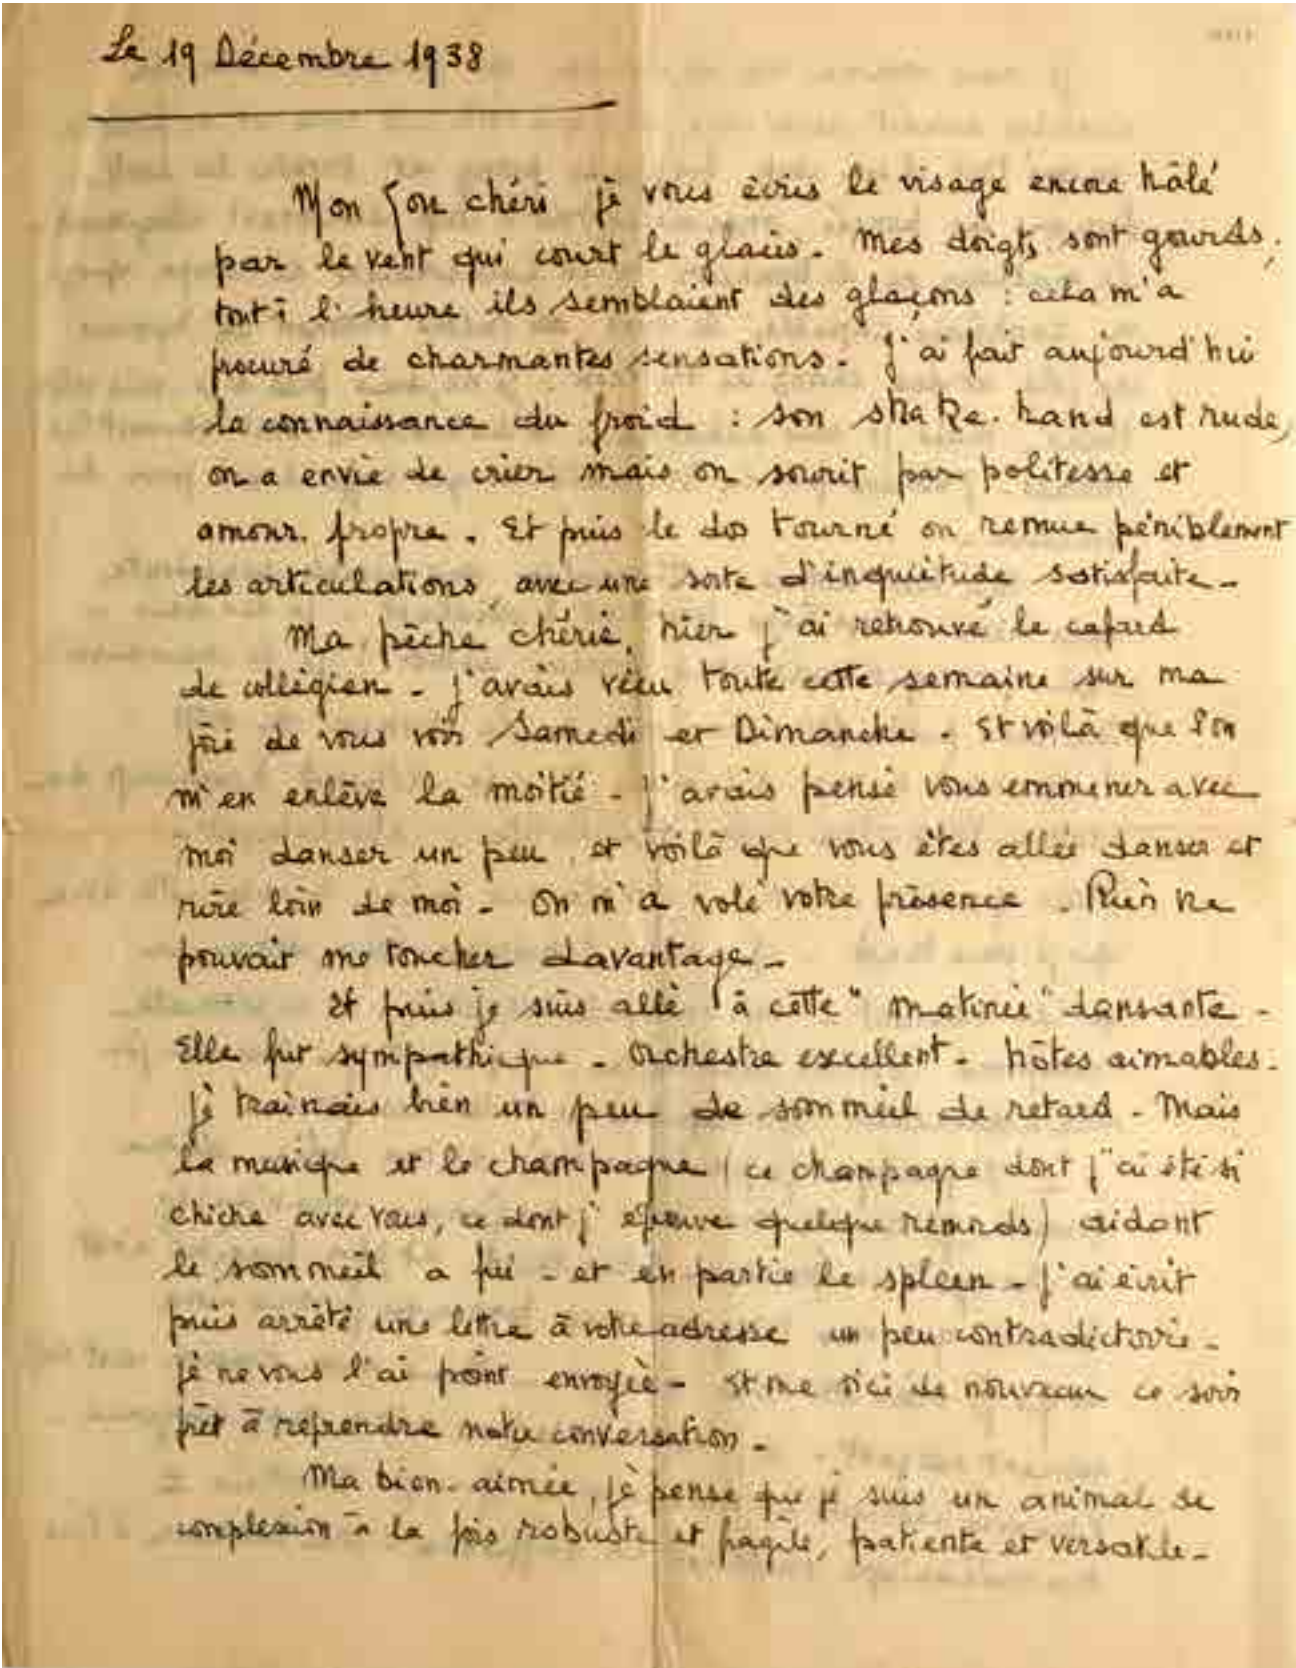 Le 19 Décembre 1938
Mon Zou chéri je vous écris le visage encore hâlé
par le vent qui court le glacis. Mes doigts sont gourds,
tout à l'heure ils semblaient des glaçons : cela m'a
procuré de charmantes sensations. J'ai fait aujourd'hui
la connaissance du froid : son shake-hand est rude,
on a envie de crier mais on sourit par politesse et
amour-propre. Et puis le dos tourné on remue péniblement
les articulations, avec une sorte d'inquiétude satisfaite.
Ma pêche chérie, hier j'ai retrouvé le cafard
de collégien. J'avais vécu toute cette semaine sur ma
joie de vous voir Samedi et Dimanche. Et voilà que l'on
m'en enlève la moitié. J'avais pensé vous emmener avec
moi danser un peu, et voilà que vous êtes allée danser et
rire loin de moi. On m'a volé votre présence. Rien ne
pouvait me toucher davantage.
Et puis je suis allé à cette "matinée" dansante.
Elle fut sympathique. Orchestre excellent. Hôtes aimables.
Je traînais bien un peu de sommeil de retard. Mais
la musique et le champagne (ce champagne dont j'ai été si
chiche avec vous, ce dont j'éprouve quelque remords) aidant
le sommeil a fui - et en partie le spleen. J'ai écrit
puis arrêté une lettre à votre adresse un peu contradictoire.
Je ne vous l'ai point envoyée. Et me voici de nouveau ce soir
prêt à reprendre notre conversation.
Ma bien-aimée, je pense que je suis un animal de
complexion à la fois robuste et fragile, patiente et versatile.